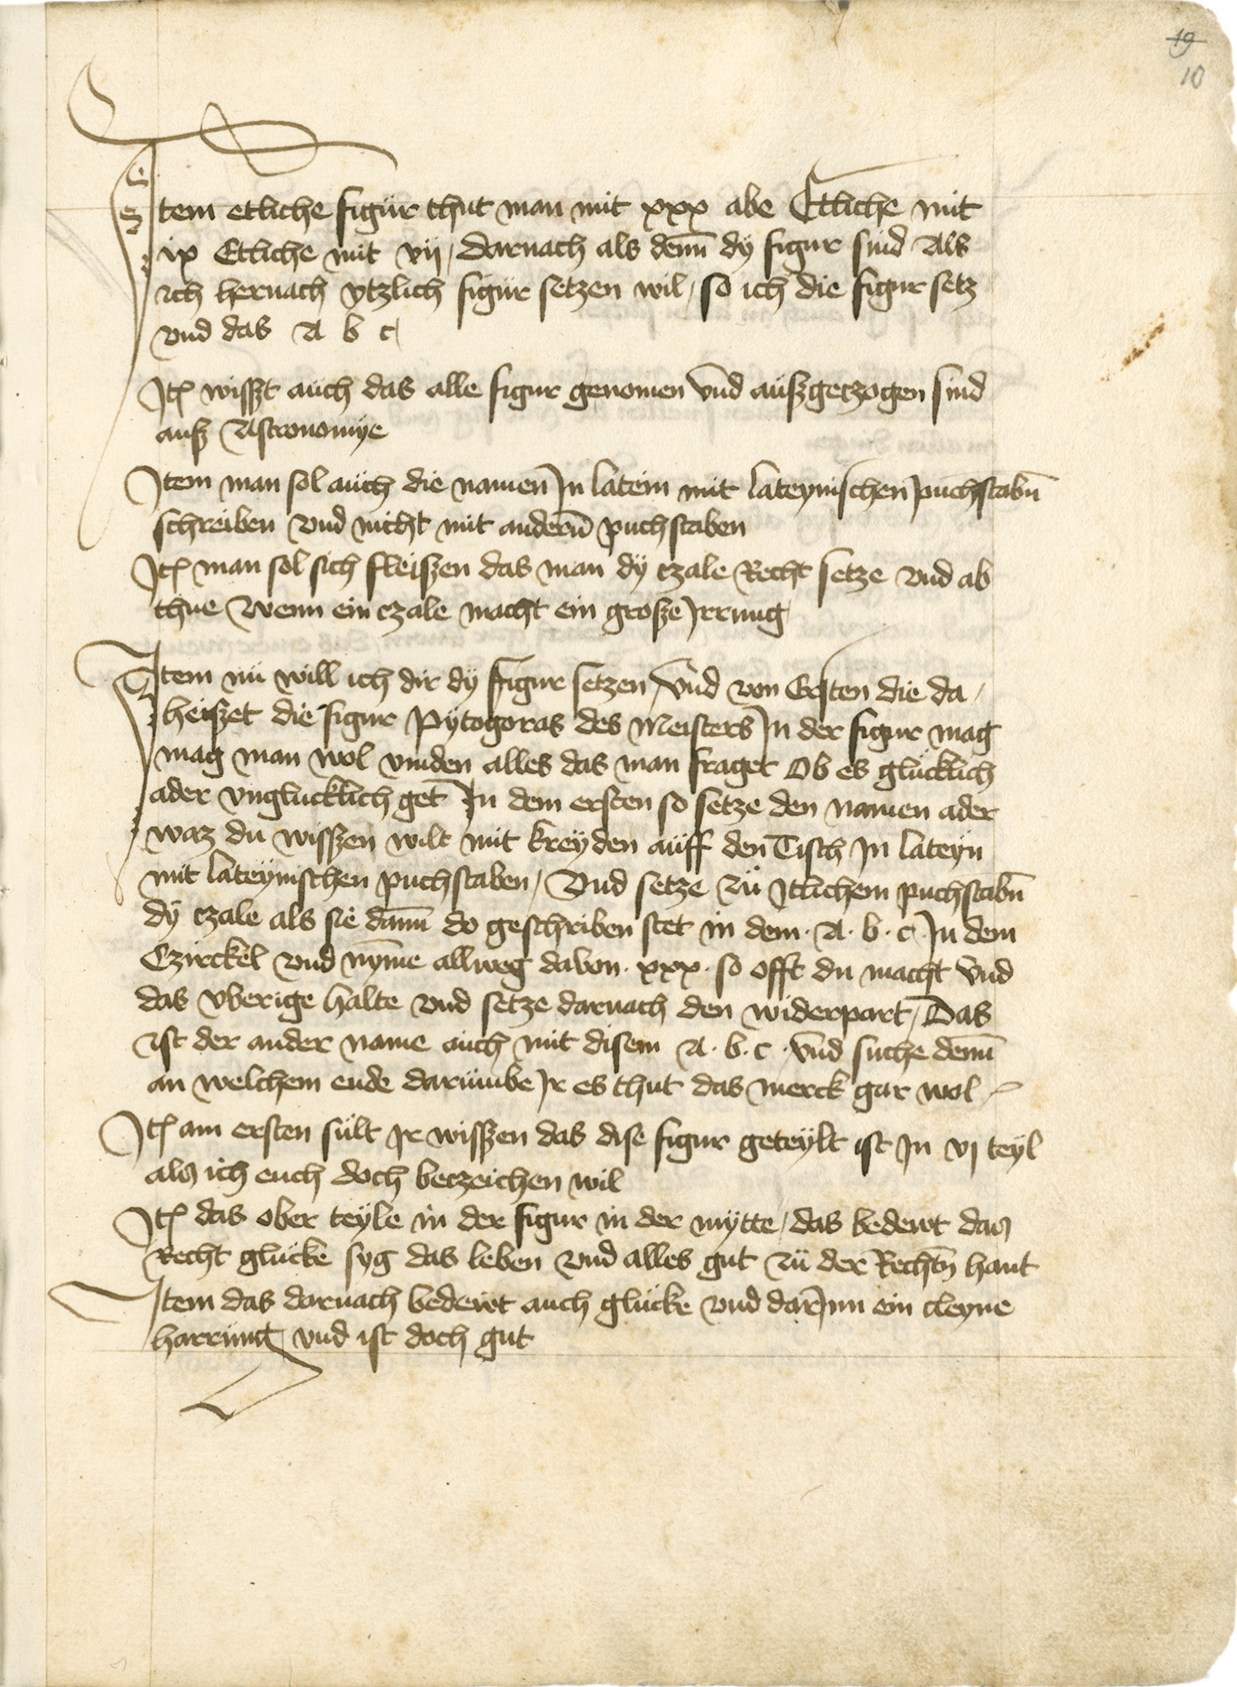 19
10
Item etliche figur thut man mit xxx abe Etliche mit
ix Etliche mit vij / darnach als denn̄ dy figur sind Als
ich hernach ytzlich figur setzen wil / so ich die figur setz
vnd das A b c
Itē wisszt auch das alle figur genomen vnd auszgetzogen sind
ausz Astronomye
Item man sol auch die namen In latein mit lateynischen puchstabn̄
schreiben vnd nicht mit andern̄ puchstaben
Itē man sol sich fleiszen das man dy czale Recht setze vnd ab
thue Wenn ein czale macht ein grosze Irrung
Item nü will ich dir dÿ figur setzen / vnd von Ersten die da /
heiszet die figur Pÿtogoras des Meisters In der figur mag
mag man wol vinden alles das man fraget Ob es glücklich
ader vnglucklich get In dem ersten so setze den namen ader
waz du wisszen wilt mit kreyden aüff den Tisch In lateyn
mit lateÿnischen puchstaben / Vnd setze zü Itlichem puchstabn̄
dÿ czale als sie dann̄ do geschriben stet in dem · A · b · c · In dem
Czirckel vnd nÿme allweg dabon · xxx · so offt du macht vnd
das vberige halte vnd setze darnach den widerpart / Das
ist der ander name auch mit disem A · b · c · vnd suche denn̄
an welchem ende darümbe Ir es thut das merck gar wol
Itē am ersten sült Ir wisszen das dise figur geteÿlt ist In vj teyl
als ich euch doch beczeichen wil
Itē das ober teÿle in der figur in der mÿtte / das bedewt das
Recht glücke syg das leben vnd alles gut zü der Rechtn̄ hant
Item das darnach bedewt auch glücke vnd dar Inn ein cleyne
harrung vnd ist doch gut